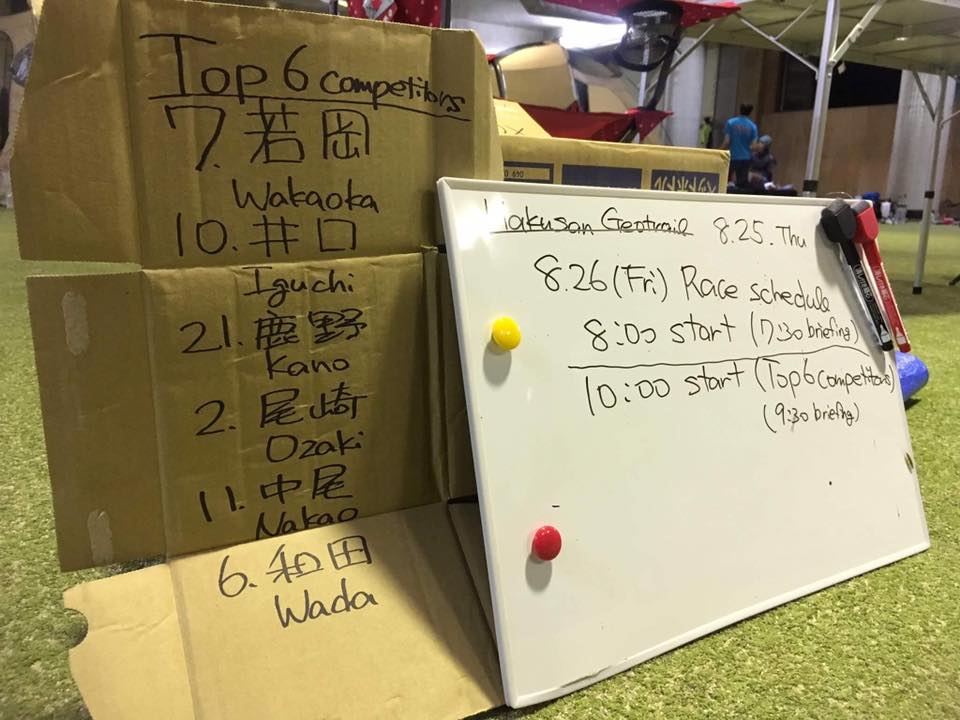 Top 6 competitors
7. 若岡
Wakaoka
10. 井口
Iguchi
21. 鹿野
Kano
2. 尾崎
Ozaki
11. 中尾
Nakao
6. 和田
Wada
Hakusan Geotrail 8.25. Thu
8.26 (Fri) Race schedule
8:00 start (7:30 briefing)
10:00 start (Top 6 competitors)
(9:30 briefing)